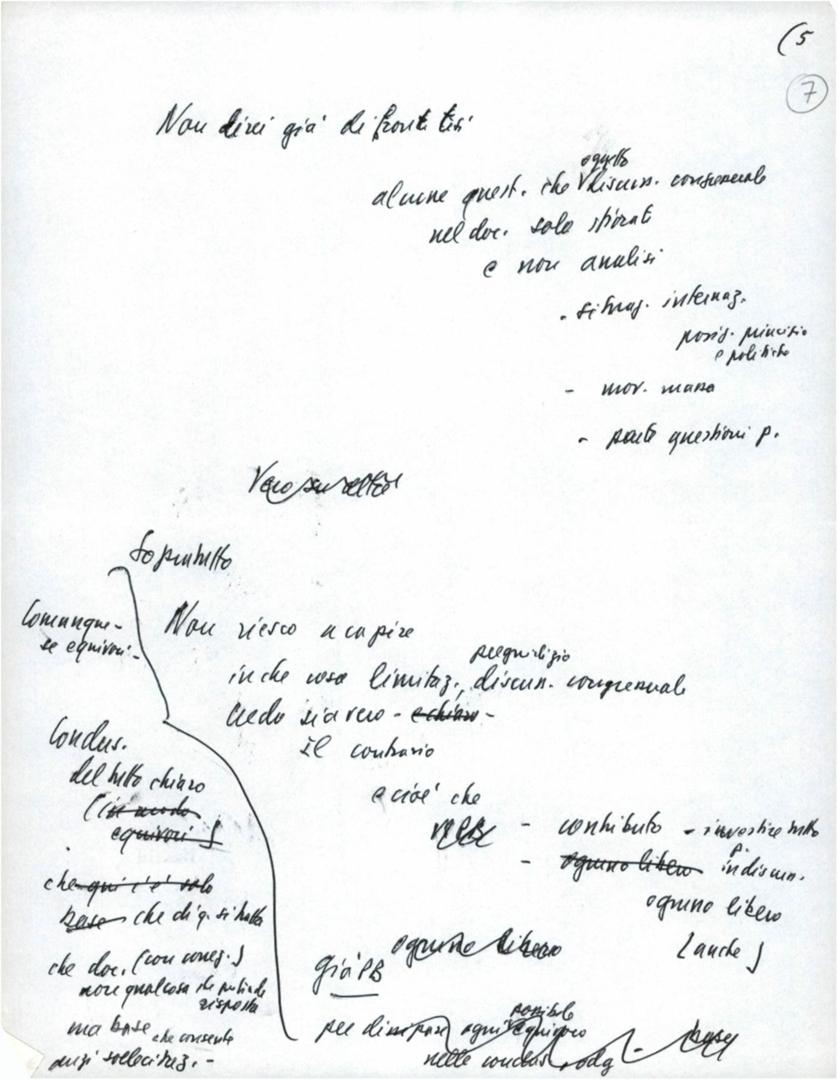 (5
7
Non direi già di fronte tesi
oggetto
alcune quest. che discuss. congressuale
nel doc. solo sfiorati
e non analisi
. situaz. internaz.
posiz. principio
e politiche
- mov. massa
- parte questioni p.
Soprattutto
Comunque-
se equivoci-
Non riesco a capire
pregiudizio
in che cosa limitaz., discuss. congressuale
Credo sia vero - e chiaro -
il contrario
e cioè che
- contributo - investire tutto
p.
- ognuno libero in discuss.
ognuno libero
[anche]
Conclus.
del tutto chiaro
(in modo
equivoci)
che qui c'è solo
base che di q. si tratta
che doc. (con conseg.)
non qualcosa che pretende
risposta
ma base che consente
anzi sollecitaz. -
ognuno libero
già PB
possibile
per dissipare ogni equivoco
nelle conclus. odg - base